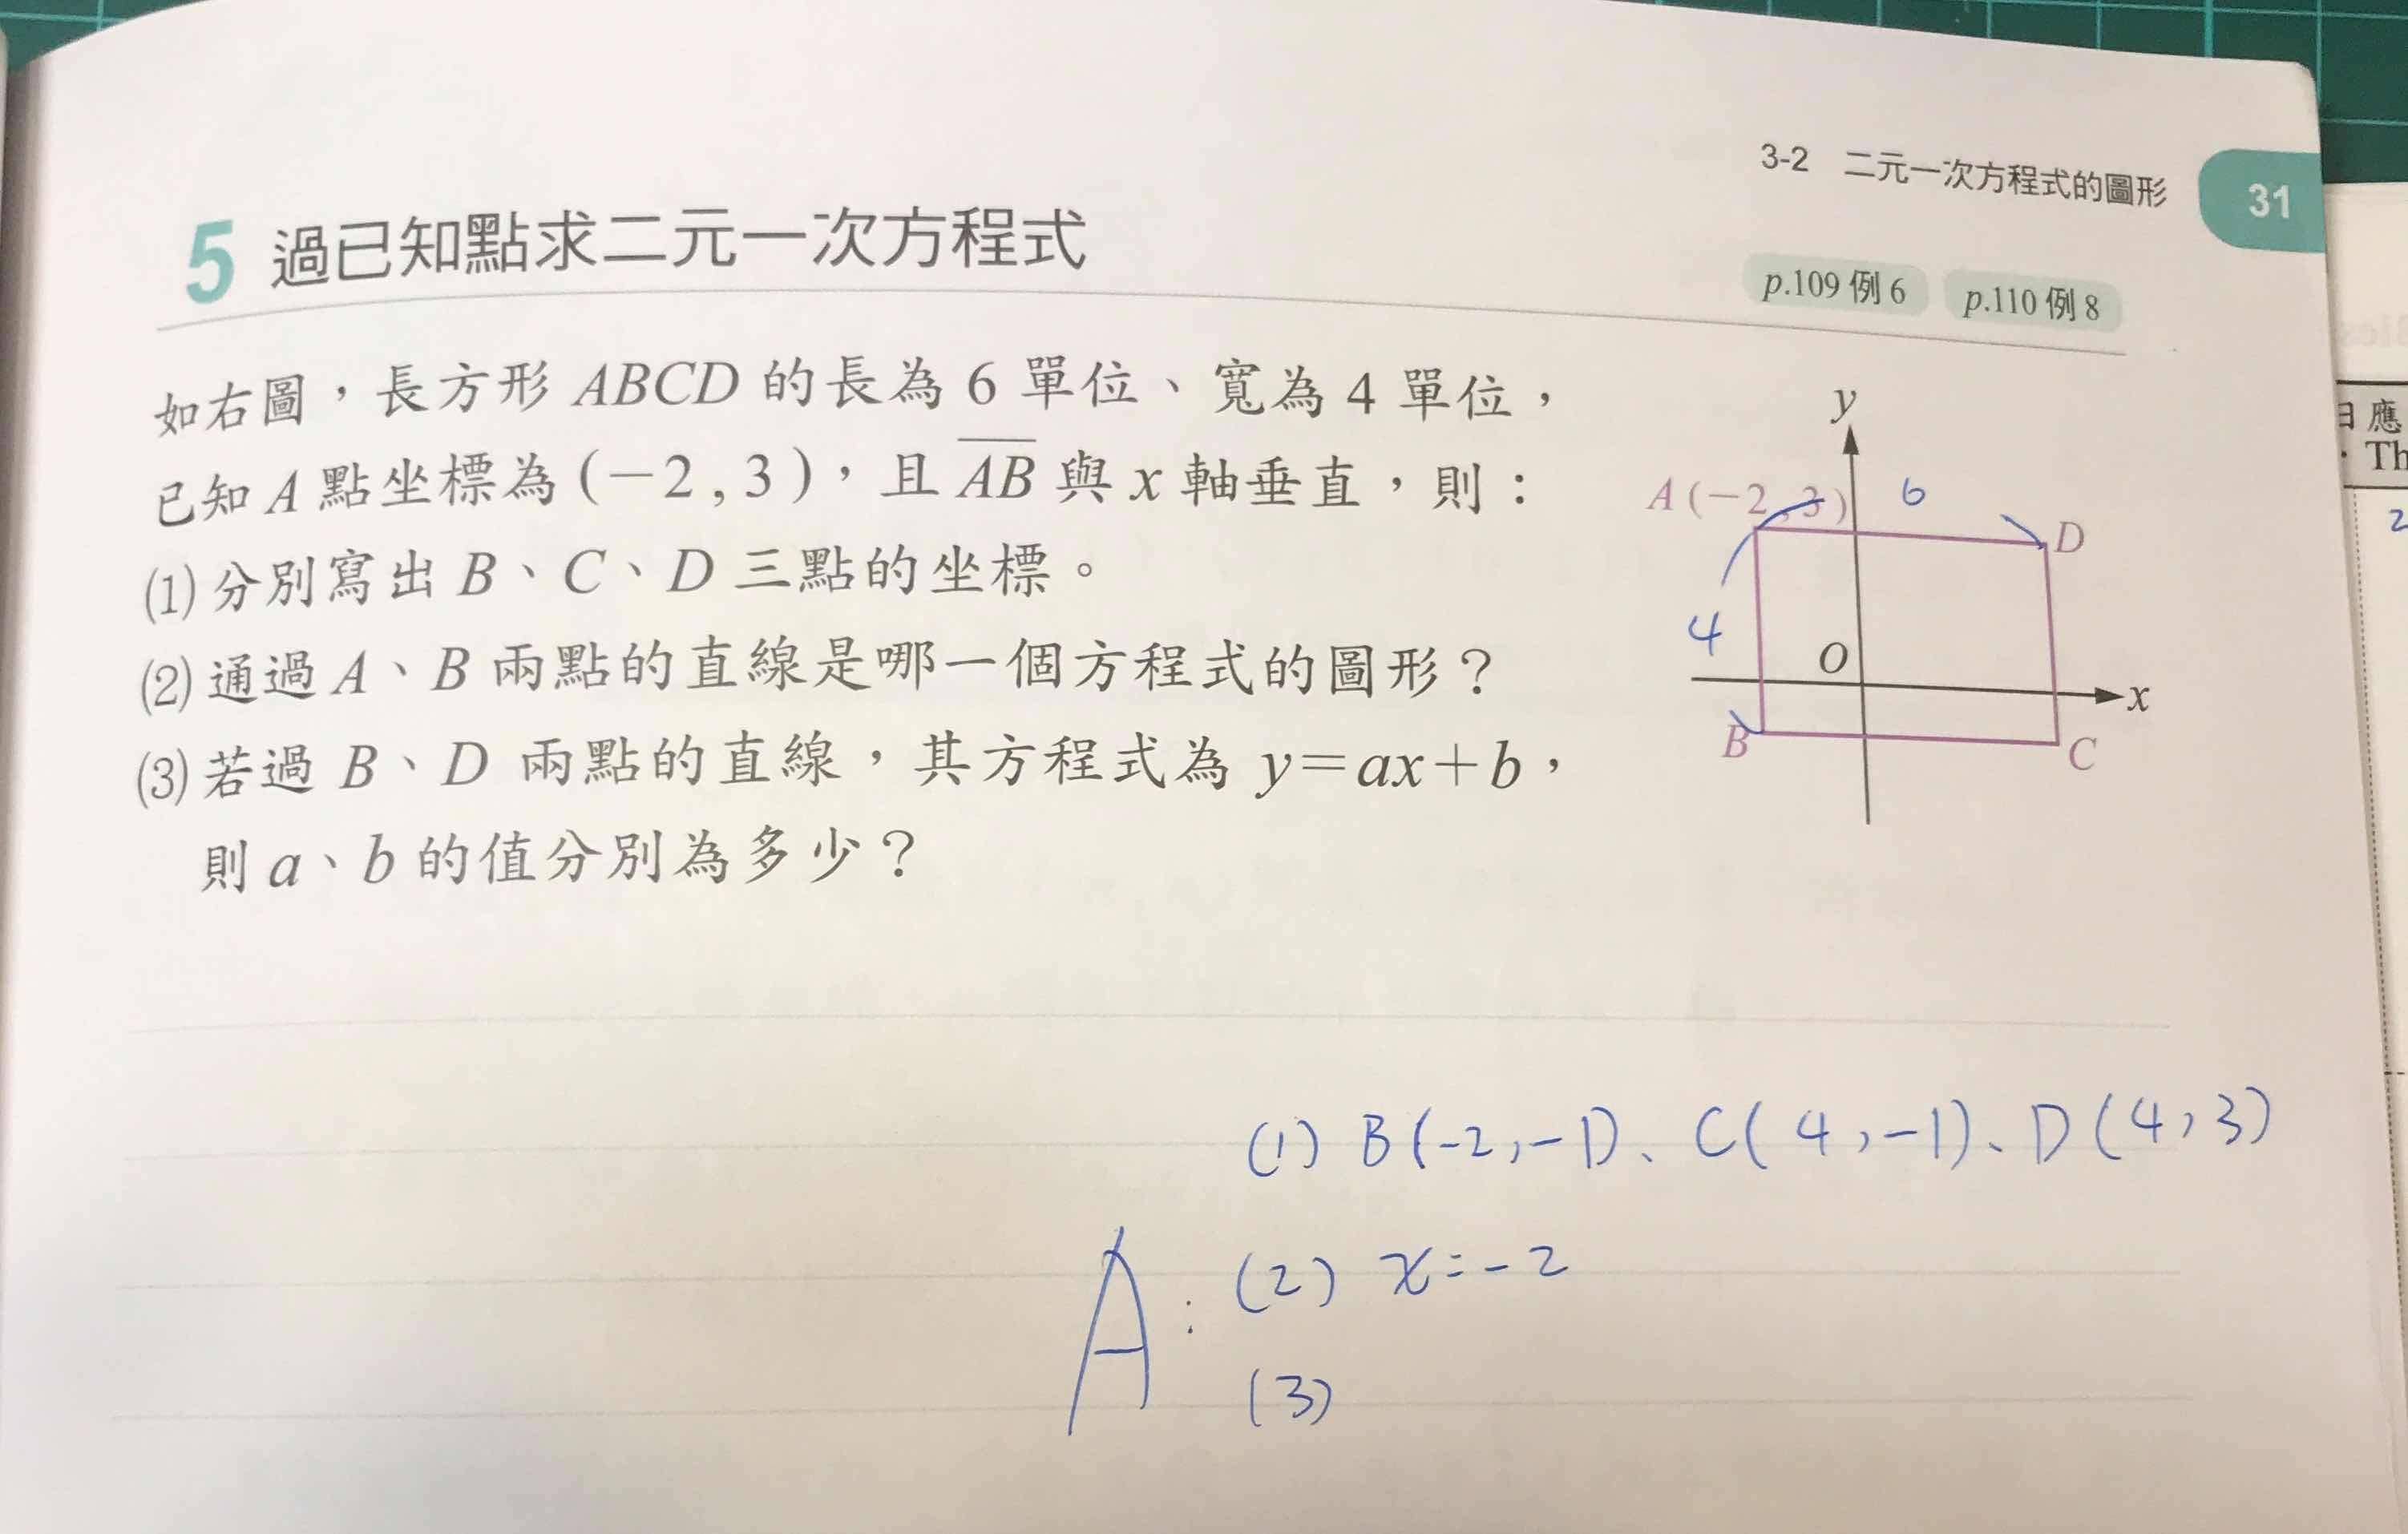 3-2 二元一次方程式的圖形 31
5 過已知點求二元一次方程式
p.109 例 6 p.110 例 8
如右圖，長方形 ABCD 的長為 6 單位、寬為 4 單位，
已知 A 點坐標為 (－2 , 3 )，且 AB 與 x 軸垂直，則：
(1) 分別寫出 B、C、D 三點的坐標。
(2) 通過 A、B 兩點的直線是哪一個方程式的圖形？
(3) 若過 B、D 兩點的直線，其方程式為 y＝ax＋b，
則 a、b 的值分別為多少？
y
A (－2 , 3 ) 6
D
4
O
x
B
C
(1) B(-2,-1)、C(4,-1)、D(4,3)
A: (2) x=-2
(3)
日應
Th
2